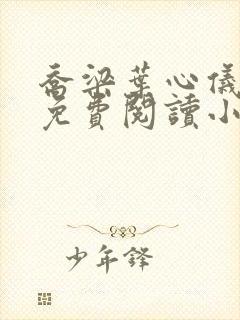 喬梁葉心儀
免費閱讀小
少年鋒